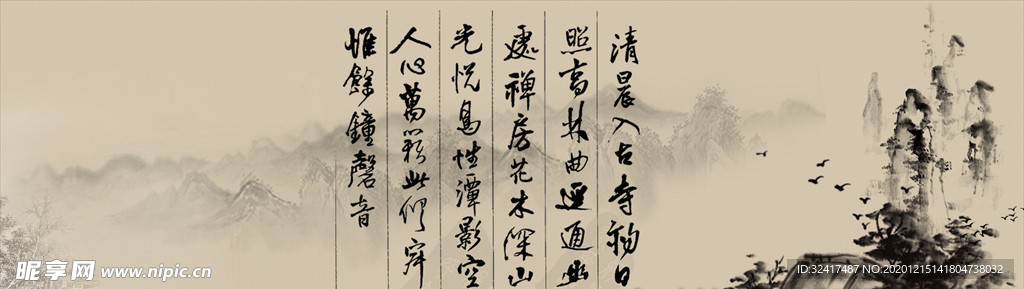 清晨入古寺初日
照高林曲逕通幽
處禪房花木深山
光悅鳥性潭影空
人心萬籟此俱寂
惟餘鐘磬音
昵享网 www.nipic.cn
ID:32417487 NO:20201215141804738032